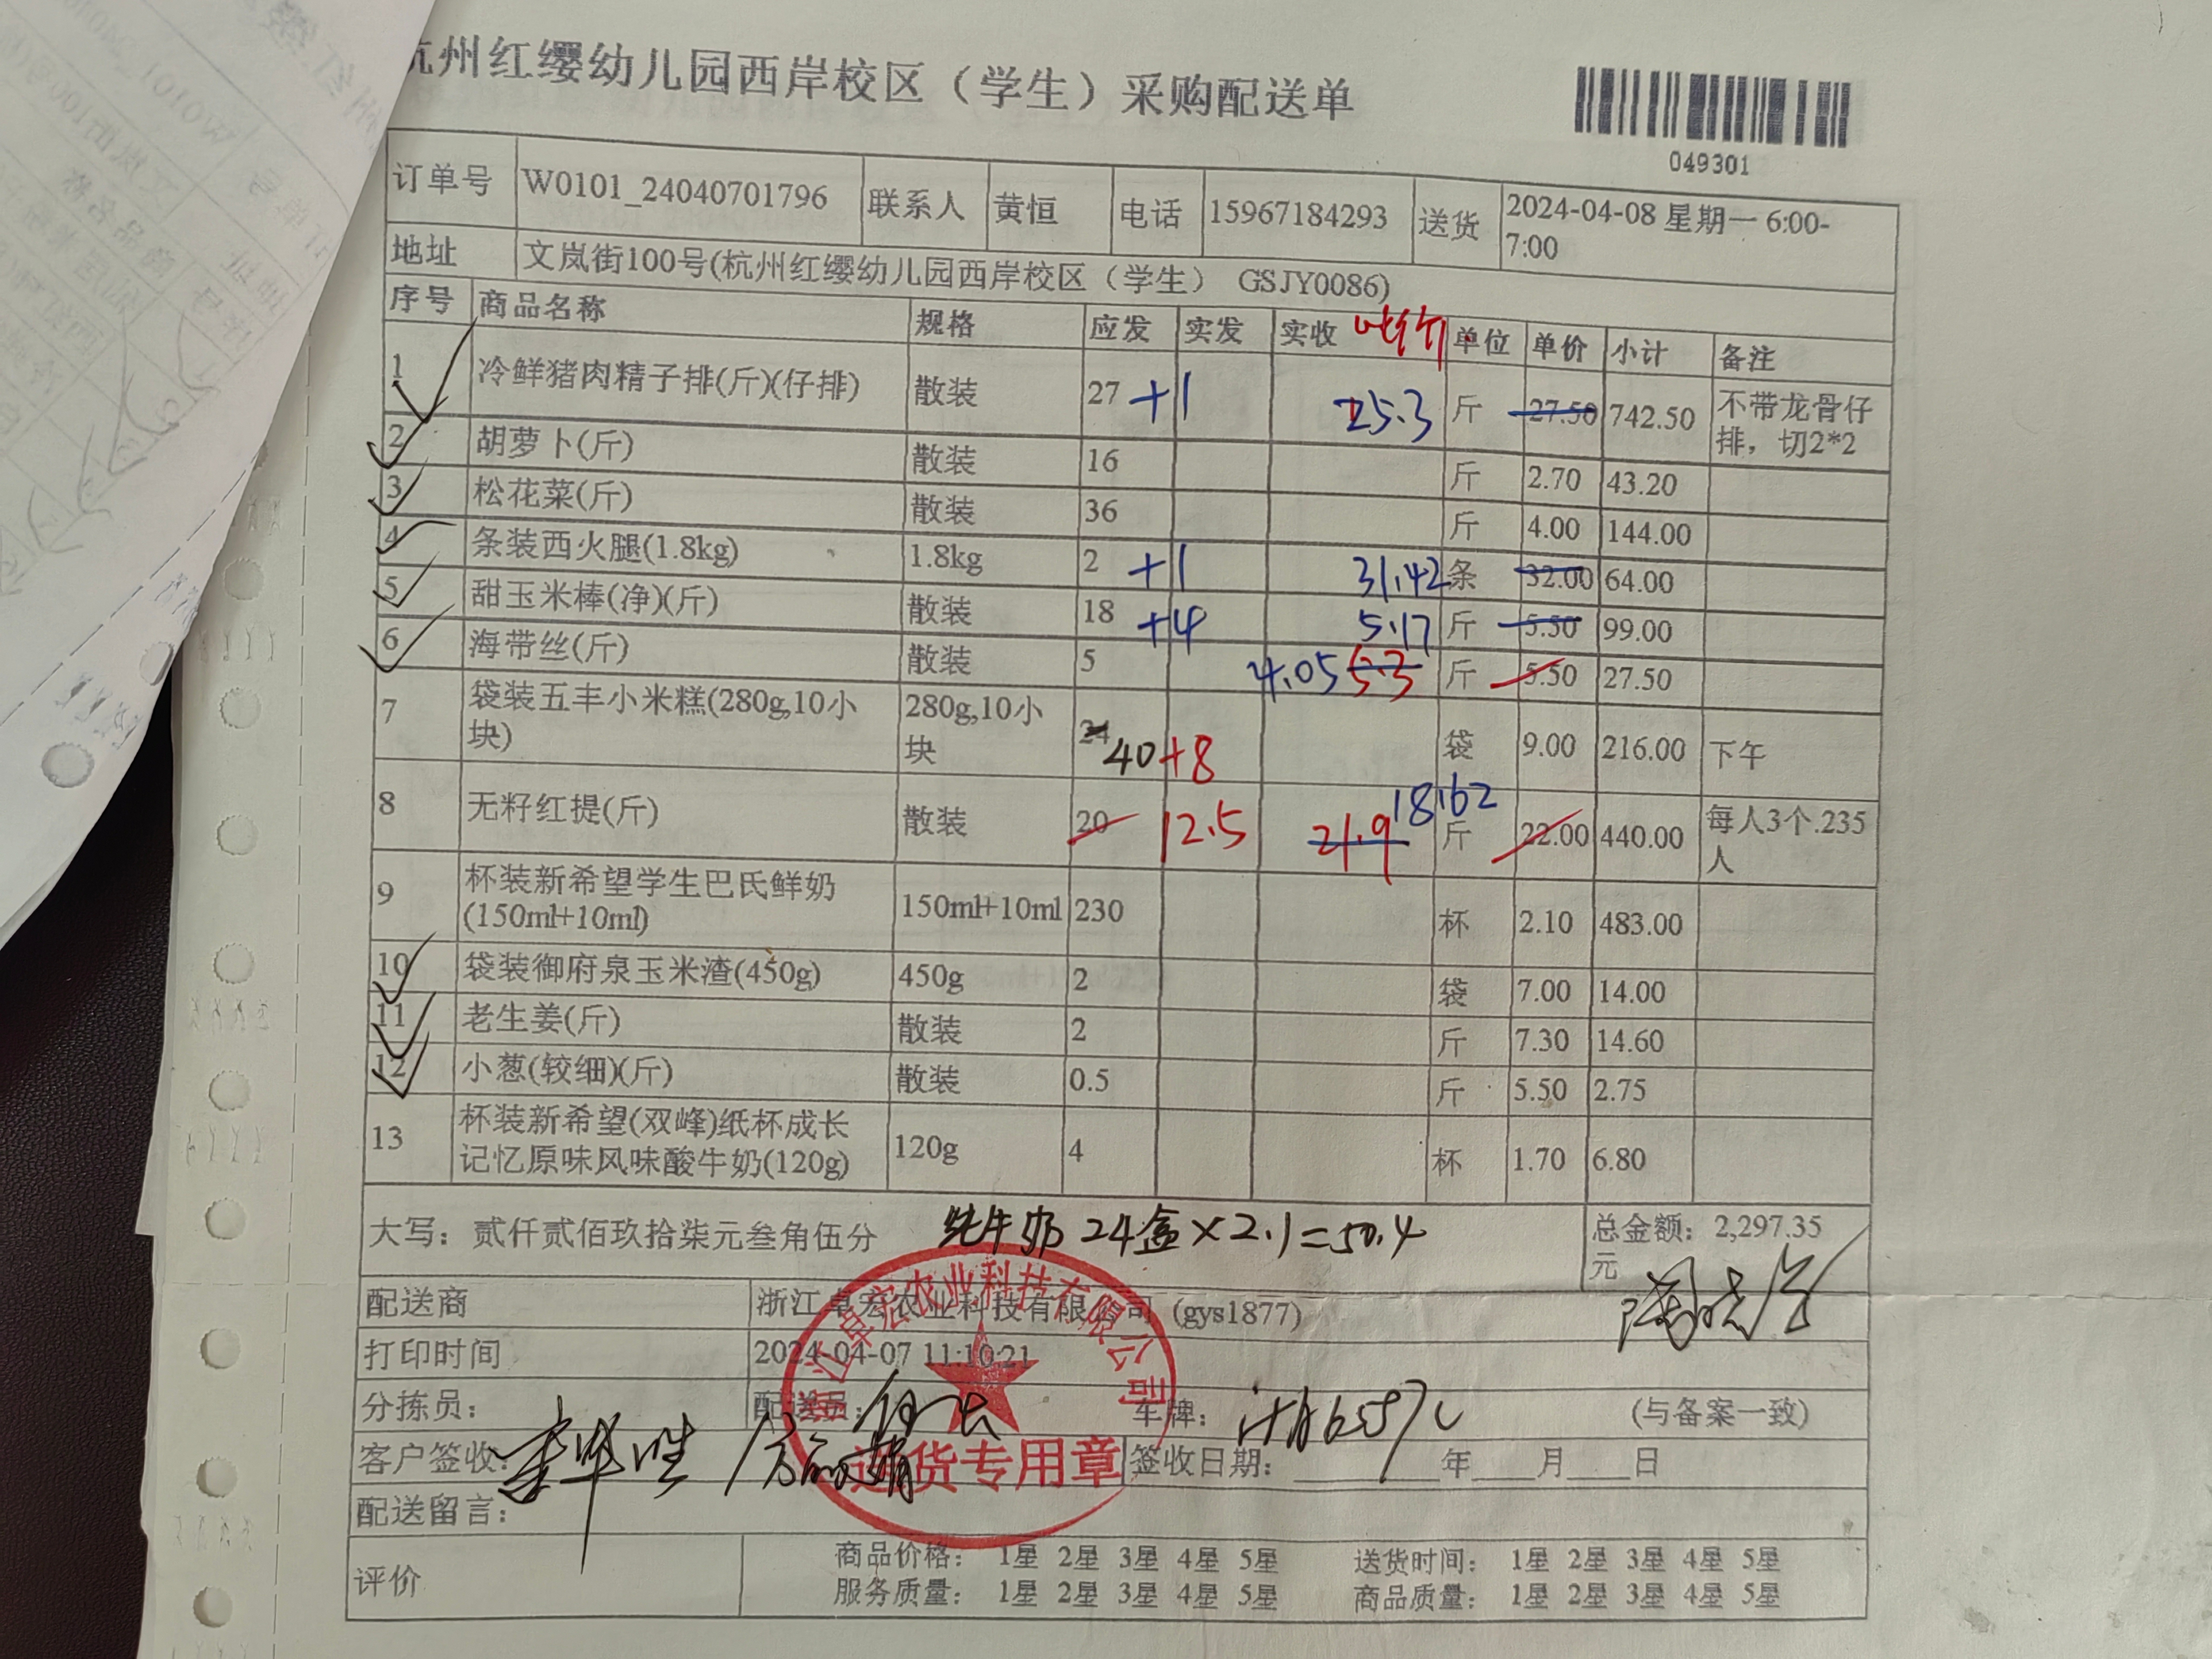 杭州红缨幼儿园西岸校区（学生）采购配送单
049301
订单号 W0101_24040701796 联系人 黄恒 电话 15967184293 送货 2024-04-08 星期一 6:00-
7:00
地址 文岚街100号(杭州红缨幼儿园西岸校区（学生） GSJY0086)
序号 商品名称 规格 应发 实发 实收 单位 单价 小计 备注
1 冷鲜猪肉精子排(斤)(仔排) 散装 27 +1 25.3 斤 27.50 742.50 不带龙骨仔
排，切2*2
2 胡萝卜(斤) 散装 16 斤 2.70 43.20
3 松花菜(斤) 散装 36 斤 4.00 144.00
4 条装西火腿(1.8kg) 1.8kg 2 +1 31.42 条 32.00 64.00
5 甜玉米棒(净)(斤) 散装 18 +4 5.17 斤 5.50 99.00
6 海带丝(斤) 散装 5 4.05 5.3 斤 5.50 27.50
7 袋装五丰小米糕(280g,10小
块) 280g,10小
块 24 40+8 袋 9.00 216.00 下午
8 无籽红提(斤) 散装 20 12.5 21.9 18.62 斤 22.00 440.00 每人3个.235
人
9 杯装新希望学生巴氏鲜奶
(150ml+10ml) 150ml+10ml 230 杯 2.10 483.00
10 袋装御府泉玉米渣(450g) 450g 2 袋 7.00 14.00
11 老生姜(斤) 散装 2 斤 7.30 14.60
12 小葱(较细)(斤) 散装 0.5 斤 5.50 2.75
13 杯装新希望(双峰)纸杯成长
记忆原味风味酸牛奶(120g) 120g 4 杯 1.70 6.80
大写：贰仟贰佰玖拾柒元叁角伍分 纯牛奶 24盒×2.1=50.4 总金额：2,297.35
元
配送商 浙江卓宏农业科技有限公司 (gys1877)
浙江卓宏农业科技有限公司
打印时间 2024-04-07 11:10:21
分拣员： 配送员： 车牌： (与备案一致)
送货专用章
客户签收： 签收日期：______年____月____日
配送留言：
评价 商品价格： 1星 2星 3星 4星 5星 送货时间： 1星 2星 3星 4星 5星
服务质量： 1星 2星 3星 4星 5星 商品质量： 1星 2星 3星 4星 5星